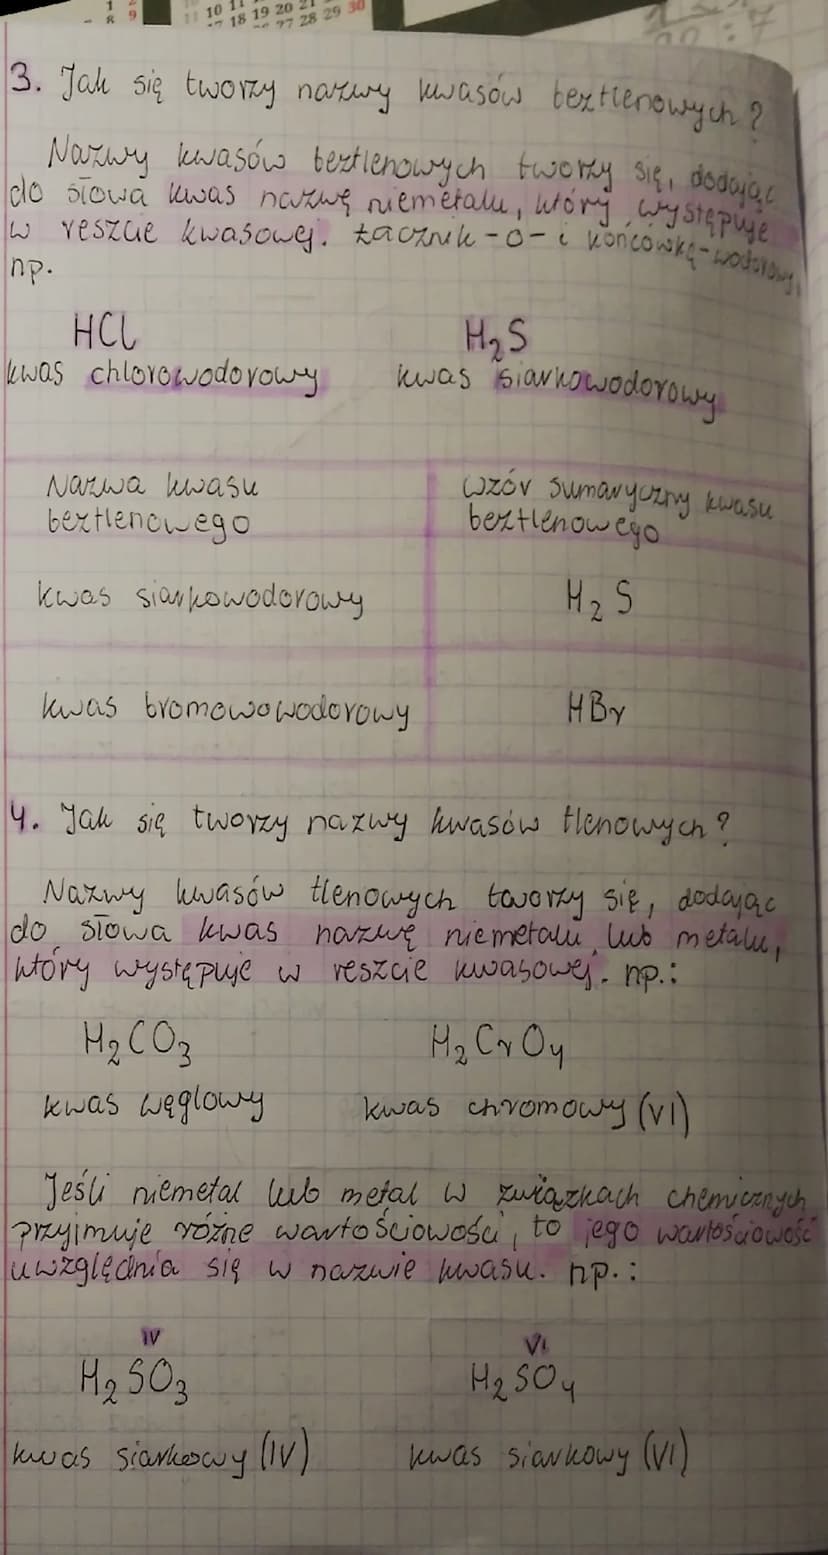 1 2
8 9
10 11
17 18 19 20 21
27 28 29 30
3. Jak się tworzy nazwy kwasów beztlenowych?
Nazwy kwasów beztlenowych tworzy się, dodając
do słowa kwas nazwę niemetalu, który występuje
w reszcie kwasowej. łącznik -o- i końcówkę -wodorowy,
np.
HCl H₂S
kwas chlorowodorowy kwas siarkowodorowy
Nazwa kwasu wzór sumaryczny kwasu
beztlenowego beztlenowego
kwas siarkowodorowy H₂S
kwas bromowowodorowy HBr
4. Jak się tworzy nazwy kwasów tlenowych?
Nazwy kwasów tlenowych tworzy się, dodając
do słowa kwas nazwę niemetalu lub metalu,
który występuje w reszcie kwasowej. np.:
H₂CO₃ H₂CrO₄
kwas węglowy kwas chromowy (VI)
Jeśli niemetal lub metal w związkach chemicznych
przyjmuje różne wartościowości, to jego wartościowość
uwzględnia się w nazwie kwasu. np.:
IV VI
H₂SO₃ H₂SO₄
kwas siarkowy (IV) kwas siarkowy (VI)